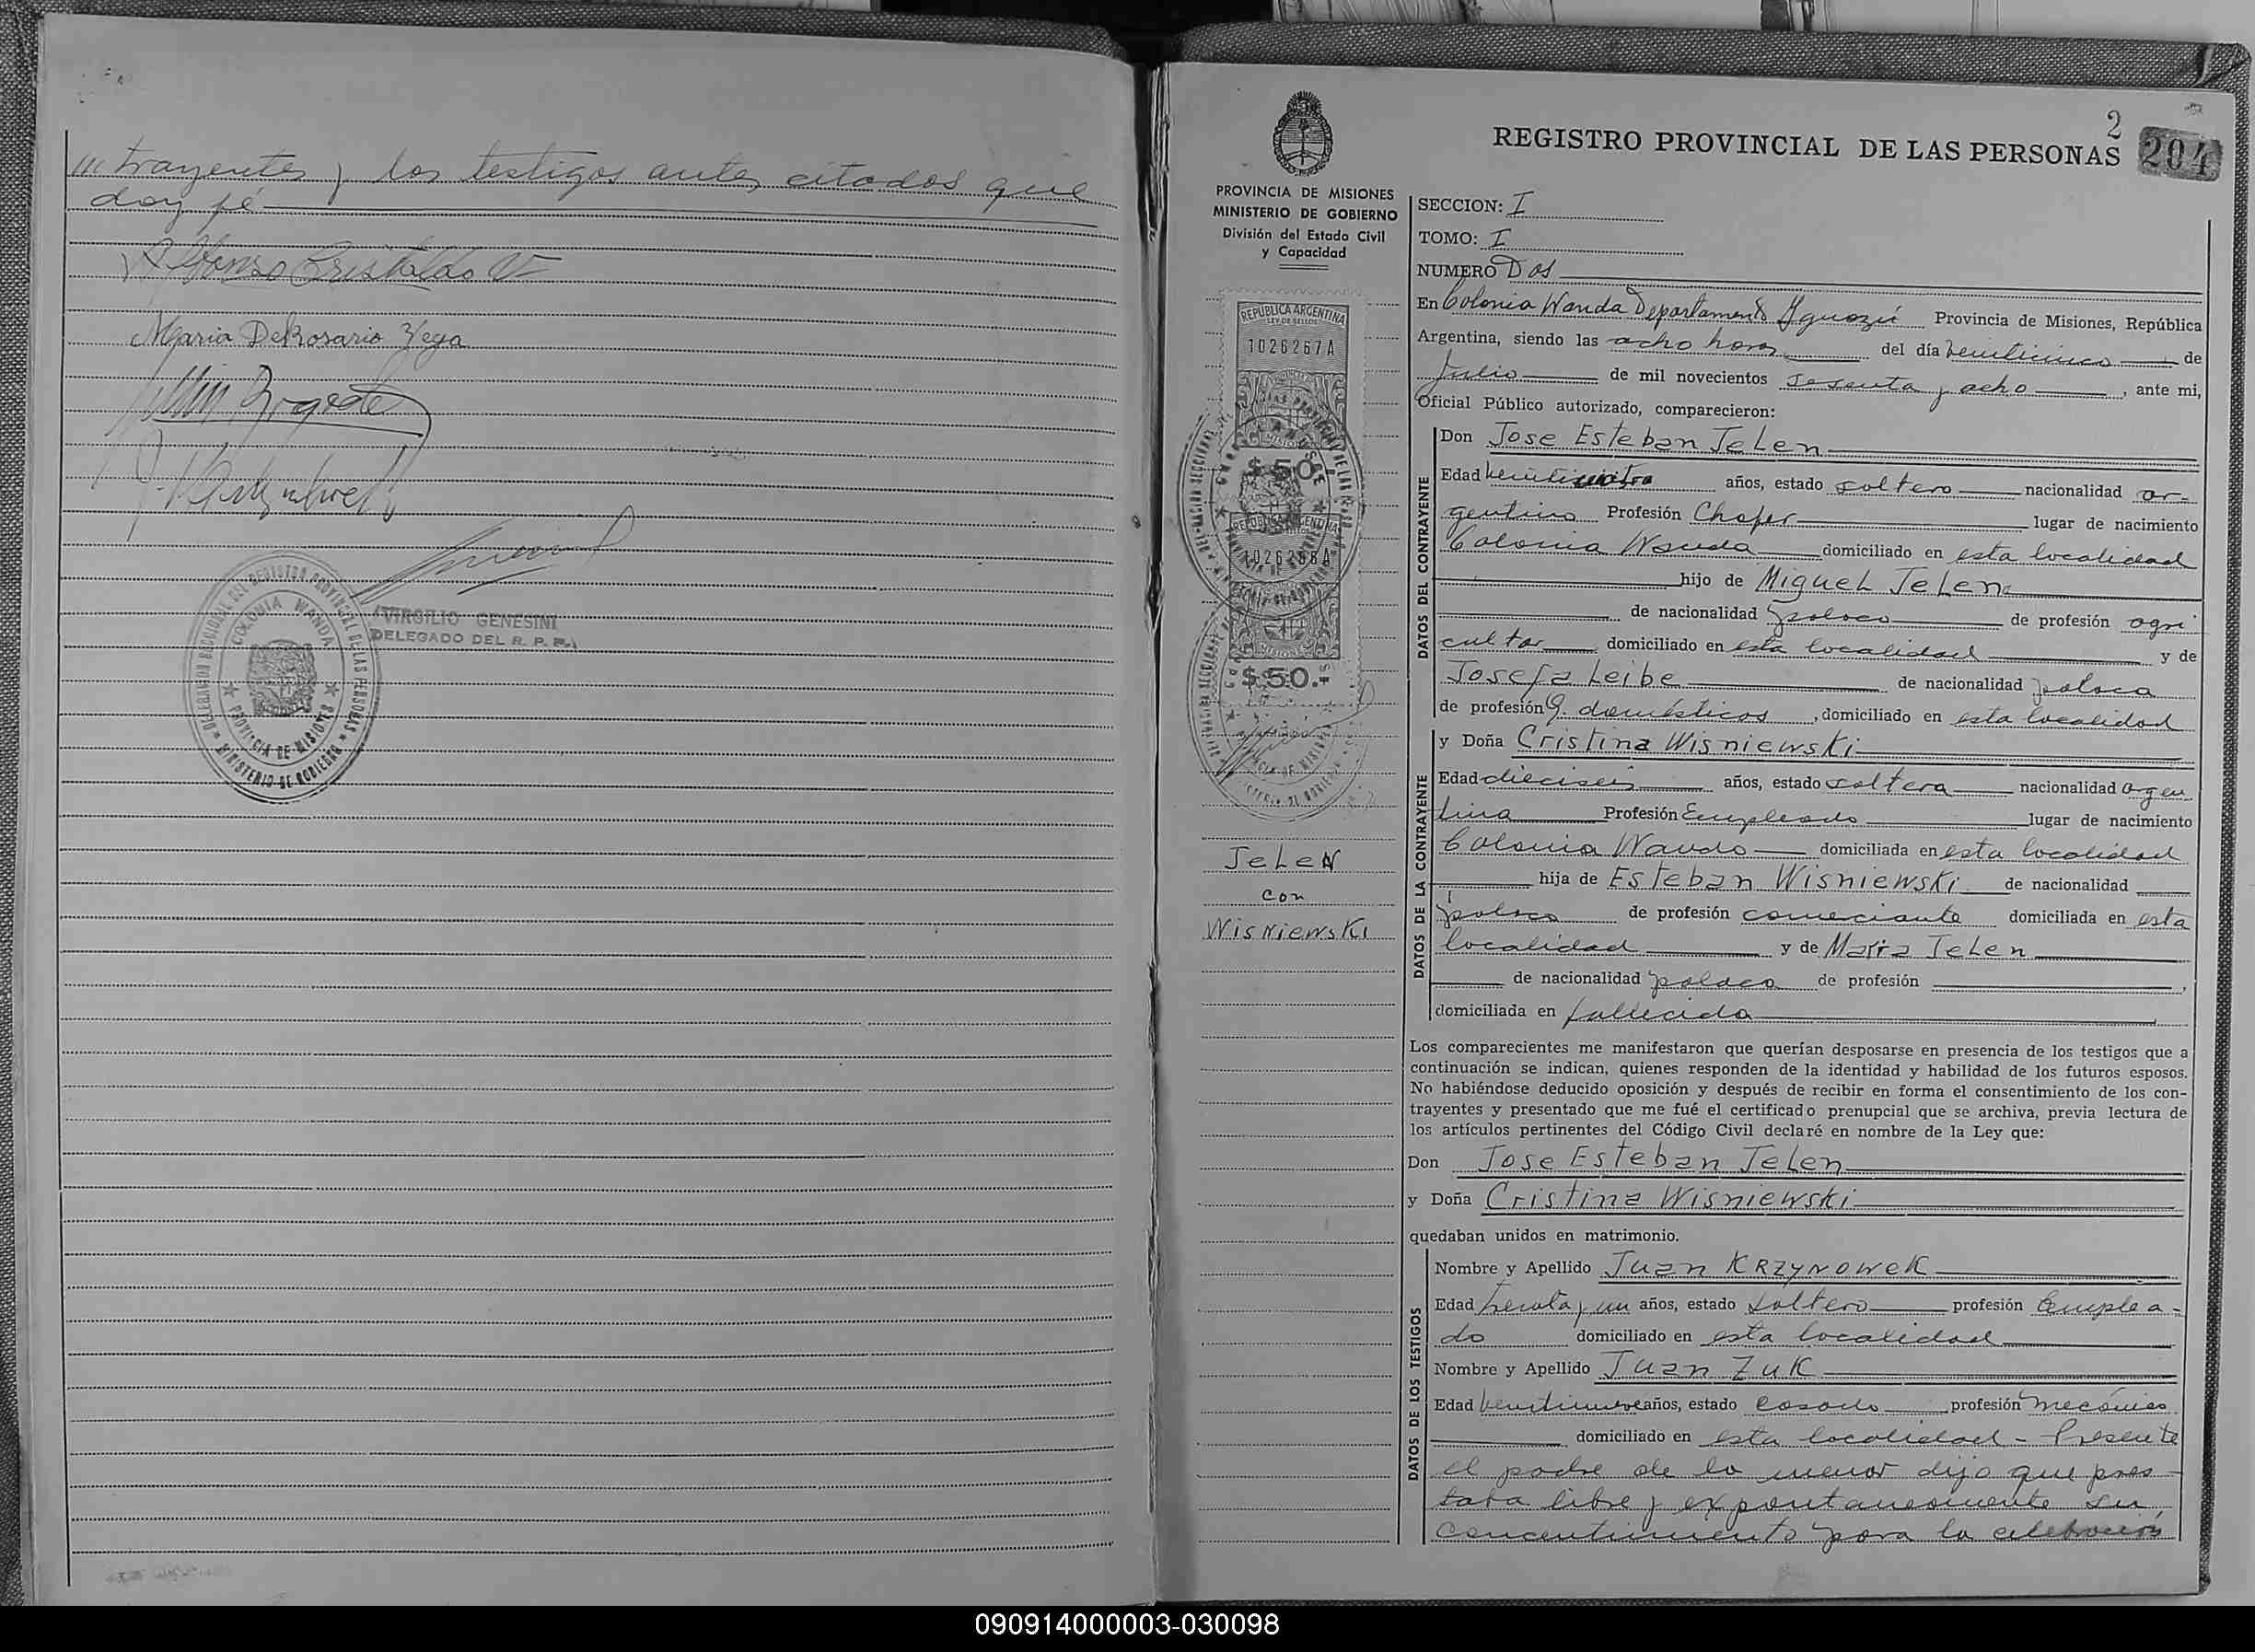 trayentes y los testigos antes citados que
doy fé
Alfonso Cristaldo V
Maria DelRosario Vega
VIRGILIO GENESINI
DELEGADO DEL R. P. P.
DELEGACION SECCIONAL DEL REGISTRO PROVINCIAL DE LAS PERSONAS
COLONIA WANDA
PROVINCIA DE MISIONES
MINISTERIO DE GOBIERNO
2
REGISTRO PROVINCIAL DE LAS PERSONAS 204
PROVINCIA DE MISIONES
MINISTERIO DE GOBIERNO
División del Estado Civil
y Capacidad
REPUBLICA ARGENTINA
LEY DE SELLOS
1026267A
$ 50
1026268A
MISIONES
$ 50.-
JeLeN
con
WisNiewsKi
SECCION: I
TOMO: I
NUMERO Dos
En Colonia Wanda Departamento Iguazú Provincia de Misiones, República
Argentina, siendo las ocho horas del día veinticinco de
Julio de mil novecientos sesenta y ocho, ante mi,
Oficial Público autorizado, comparecieron:
DATOS DEL CONTRAYENTE
Don Jose Esteban JeLen
Edad años, estado soltero nacionalidad ar-
gentino Profesión Chofer lugar de nacimiento
Colonia Wanda domiciliado en esta localidad
hijo de MigueL JeLen
de nacionalidad polaco de profesión agri
cultor domiciliado en esta localidad y de
Josefa Leibe de nacionalidad polaca
de profesión Q. domésticos, domiciliado en esta localidad
DATOS DE LA CONTRAYENTE
y Doña Cristina Wisniewski
Edad dieciseis años, estado soltera nacionalidad argen
tina Profesión Empleada lugar de nacimiento
Colonia Wanda domiciliada en esta localidad
hija de Esteban Wisniewski de nacionalidad
polaco de profesión comerciante domiciliada en esta
localidad y de Maria JeLen
de nacionalidad polaca de profesión ,
domiciliada en fallecida
Los comparecientes me manifestaron que querían desposarse en presencia de los testigos que a
continuación se indican, quienes responden de la identidad y habilidad de los futuros esposos.
No habiéndose deducido oposición y después de recibir en forma el consentimiento de los con-
trayentes y presentado que me fué el certificado prenupcial que se archiva, previa lectura de
los artículos pertinentes del Código Civil declaré en nombre de la Ley que:
Don Jose Esteban JeLen
y Doña Cristina Wisniewski
quedaban unidos en matrimonio.
DATOS DE LOS TESTIGOS
Nombre y Apellido Juan KRZYNOWeK
Edad treinta y un años, estado soltero profesión Emplea-
do domiciliado en esta localidad
Nombre y Apellido Juan ZuK
Edad veintinueve años, estado Casado profesión mecánico
domiciliado en esta localidad - Presente
el padre de la menor dijo que pres-
taba libre y expontaneamente su
concentimiento para la celebración
090914000003-030098